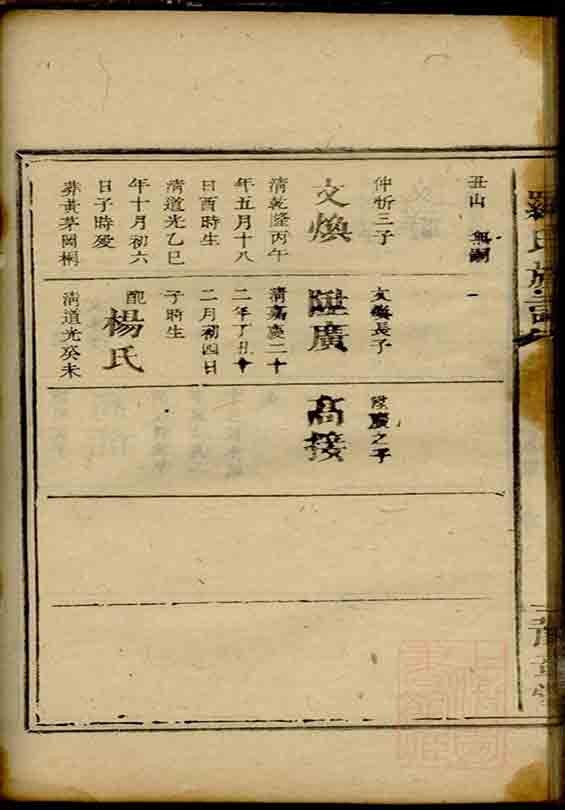 羅氏族
丑山 無嗣
仲忻三子
文煥
清乾隆丙午
年五月十八
日酉時生
清道光乙巳
年十月初六
日子時歿
葬黃茅岡桐
文煥長子
陞廣
清嘉慶二十
二年丁丑十
二月初四日
子時生
配
楊氏
清道光癸未
陞廣之子
高接